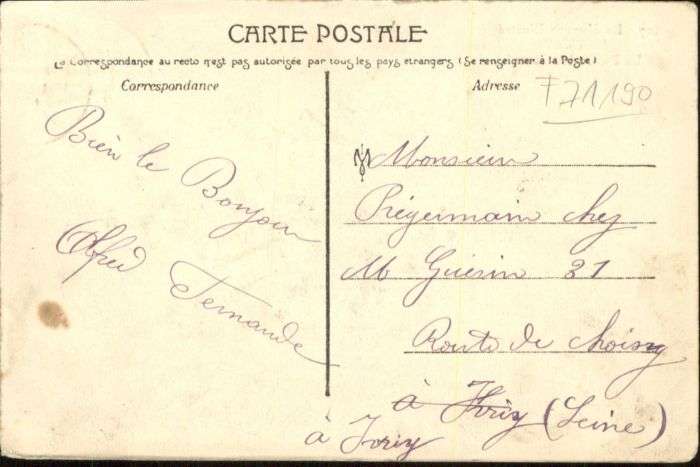 CARTE POSTALE
La Correspondance au recto n'est pas autorisée par tous les pays étrangers (Se renseigner à la Poste)
Correspondance
Adresse
F71190
Bien le Bonjour
Alfred Fernande
Monsieur
Prégermain chez
M Guérin 21
Route de Choisy
à Ivriy (Seine)
à Ivriy